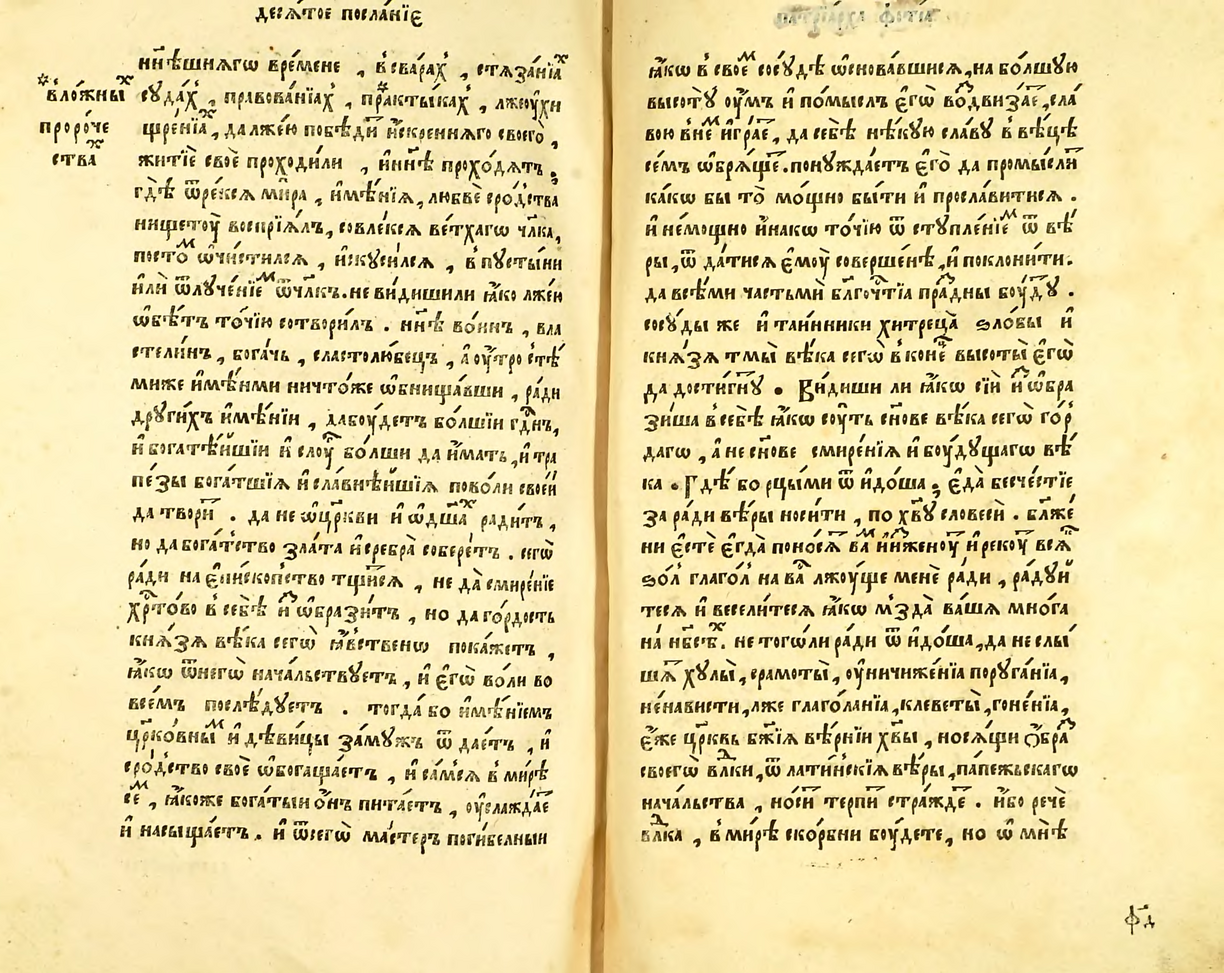 десѧ́тое посла́нїє
нн҃ѣшнѧгѡ вре́мене , в̾сва́рахⷯ , стѧза́нїаⷯ
вло́жныⷯ
проро́че
ства̀ⷯ
суда́хⷯ , правова́нїахⷯ , пра́ктыкахⷯ , лжеѹхи
щре́нїаⷯ , да лже́ю побѣди́ⷮ и҆́скреннѧго своего̀ ,
житїѐ своѐ проходи́ли , и҆нн҃ѣ прохо́дѧтъ .
гдѣ́ ѿре́ксѧ ми́ра , и҆мѣ́нїѧ , любвѐ сро́дства
нищетоу̀ воспрїѧ́лъ , совле́ксѧ ве́тхагѡ чл҃ка ,
посто́ⷨ ѡ҆чи́стилсѧ , и҆скуси́лсѧ , в̾пусты́ни
и҆лѝ ѿлуче́нїеⷨ ѿчл҃къ . не ви́диши ли ꙗ҆́ко лже́ю
ѡ҆бѣ́тъ то́чїю сотвори́лъ . нн҃ѣ во́инъ , вла
стели́нъ , бога́чь , сластолю́бецъ , а҆ ѹ҆́тро с тѣ́
миже и҆мѣ́нми ничто́же ѡ҆бнища́вши , ра́ди
други́хъ и҆мѣ́нїи , да бо́удетъ бо́лшїи гдⷭ҇нъ ,
и҆ богатѣ́йшїи и҆ слоуⷢ҇ бо́лши да и҆́мать , и҆ тра
пе́зы бога́тшїѧ и҆ славнѣ́йшїѧ пово́ли свое́й
да твори́ⷮ . да не ѡ҆цр҃кви и҆ ѡ҆дш҃аⷯ ради́тъ ,
но да бога́тство зла́та и҆ сребра̀ собере́тъ . сегѡ̀
ра́ди на є҆пи́скопство тщи́тсѧ , не да̀ смире́нїе
хрⷭ҇то́во в̾ себѣ̀ и҆ѡ҆брази́тъ , но да го́рдость
кнѧ́зѧ вѣ́ка сегѡ̀ ꙗ҆́вственѡ пока́жетъ ,
ꙗ҆́кѡ ѿнегѡ̀ нача́льствуетъ , и҆ є҆гѡ̀ во́ли во
все́мъ послѣ́дуетъ . тогда̀ бо и҆мѣ́нїемъ
цр҃ко́вныⷨ и҆ дѣви́цы за́мужъ ѿ дае́тъ , и҆
сро́дство своѐ ѡ҆богаща́етъ , и҆ са́мсѧ в̾ ми́рѣ
се́ⷨ , ꙗ҆́коже бога́тыи ѻ҆́нъ пита́етъ , ѹ҆слажда́еⷮ
и҆ насыща́етъ . и҆ ѿсегѡ̀ ма́стеръ поги́белныи
ꙗ҆́кѡ в̾ свое́ⷨ сосу́дѣ ѡ҆снова́вшисѧ , на бо́лшую
высоту̀ ѹ҆́мъ и҆ по́мыслъ є҆гѡ̀ воⷥдвиза́еⷮ , сла
вою в̾не́ⷨ и҆гра́еⷮ , да себѣ̀ нѣ́кую сла́ву в̾ вѣ́цѣ
се́мъ ѡ҆брѧ́щеⷮ . понужда́етъ є҆го̀ да промы́слиⷮ
ка́кѡ бы то̀ мо́щно бы́ти и҆ просла́витисѧ .
и҆ не́мощно и҆на́кѡ то́чїю ѿ ступле́нїеⷨ ѿ вѣ́
ры , ѿ да́тисѧ є҆моу̀ соверше́нѣ , и҆ поклони́ти .
да всѣ́ми частьмѝ бл҃гочⷭ҇тїа пра́ⷥдны бо́уду .
сосу́ды же и҆ таи́нники хитреца̀ ѕло́бы и҆
кнѧ́зѧ тмы̀ вѣ́ка сегѡ̀ в̾ коне́ⷰ высоты̀ є҆гѡ̀
да дости́гну . Ви́диши ли ꙗ҆́кѡ сїѝ и҆ѡ҆бра
зи́ша в̾ себѣ̀ ꙗ҆́кѡ соу́ть сн҃ове вѣ́ка сегѡ̀ го́р
дагѡ , а҆ не сн҃ове смире́нїѧ и҆ бо́удущагѡ вѣ́
ка . Гдѣ́ бо рцы́ми ѿ и҆до́ша ; є҆да̀ бесче́стїе
за ра́ди вѣ́ры носи́ти , по хв҃у словесѝ . бл҃же
ни є҆стѐ є҆гда̀ поно́сѧⷮ ваⷨ и҆и҆женоуⷮ и҆рекоуⷮ всѧ́ⷦ
ѕо́лⷧ глаго́лⷧ на ва̀ⷭ лжоу́ще менѐ ра́ди , ра́дуй
тесѧ и҆ весели́тесѧ ꙗ҆́кѡ мздà ва́шѧ мно́га
на́ нб҃сѣⷯ . не тогѡ̀ли ра́ди ѿ и҆до́ша , да не слы́
шѧⷮ хулы̀ , срамоты̀ , ѹ҆ничиже́нїа поруга́нїа ,
не́нависти , лже глаго́ланїа , клеветы̀ , гоне́нїа ,
є҆́же цр҃квь бж҃їѧ вѣ́рнїи хв҃ы , носѧ́щи ѻ҆́браⷥ
своегѡ̀ влⷣки , ѿ лати́нскїѧ вѣ́ры , папе́жьскагѡ
нача́льства , но́сиⷮ терпи́ⷮ стра́ждеⷮ . и҆́бо речѐ
влⷣка , в̾ ми́рѣ ско́рбни бо́удете , но ѡ҆ мнѣ̀
ф҃д